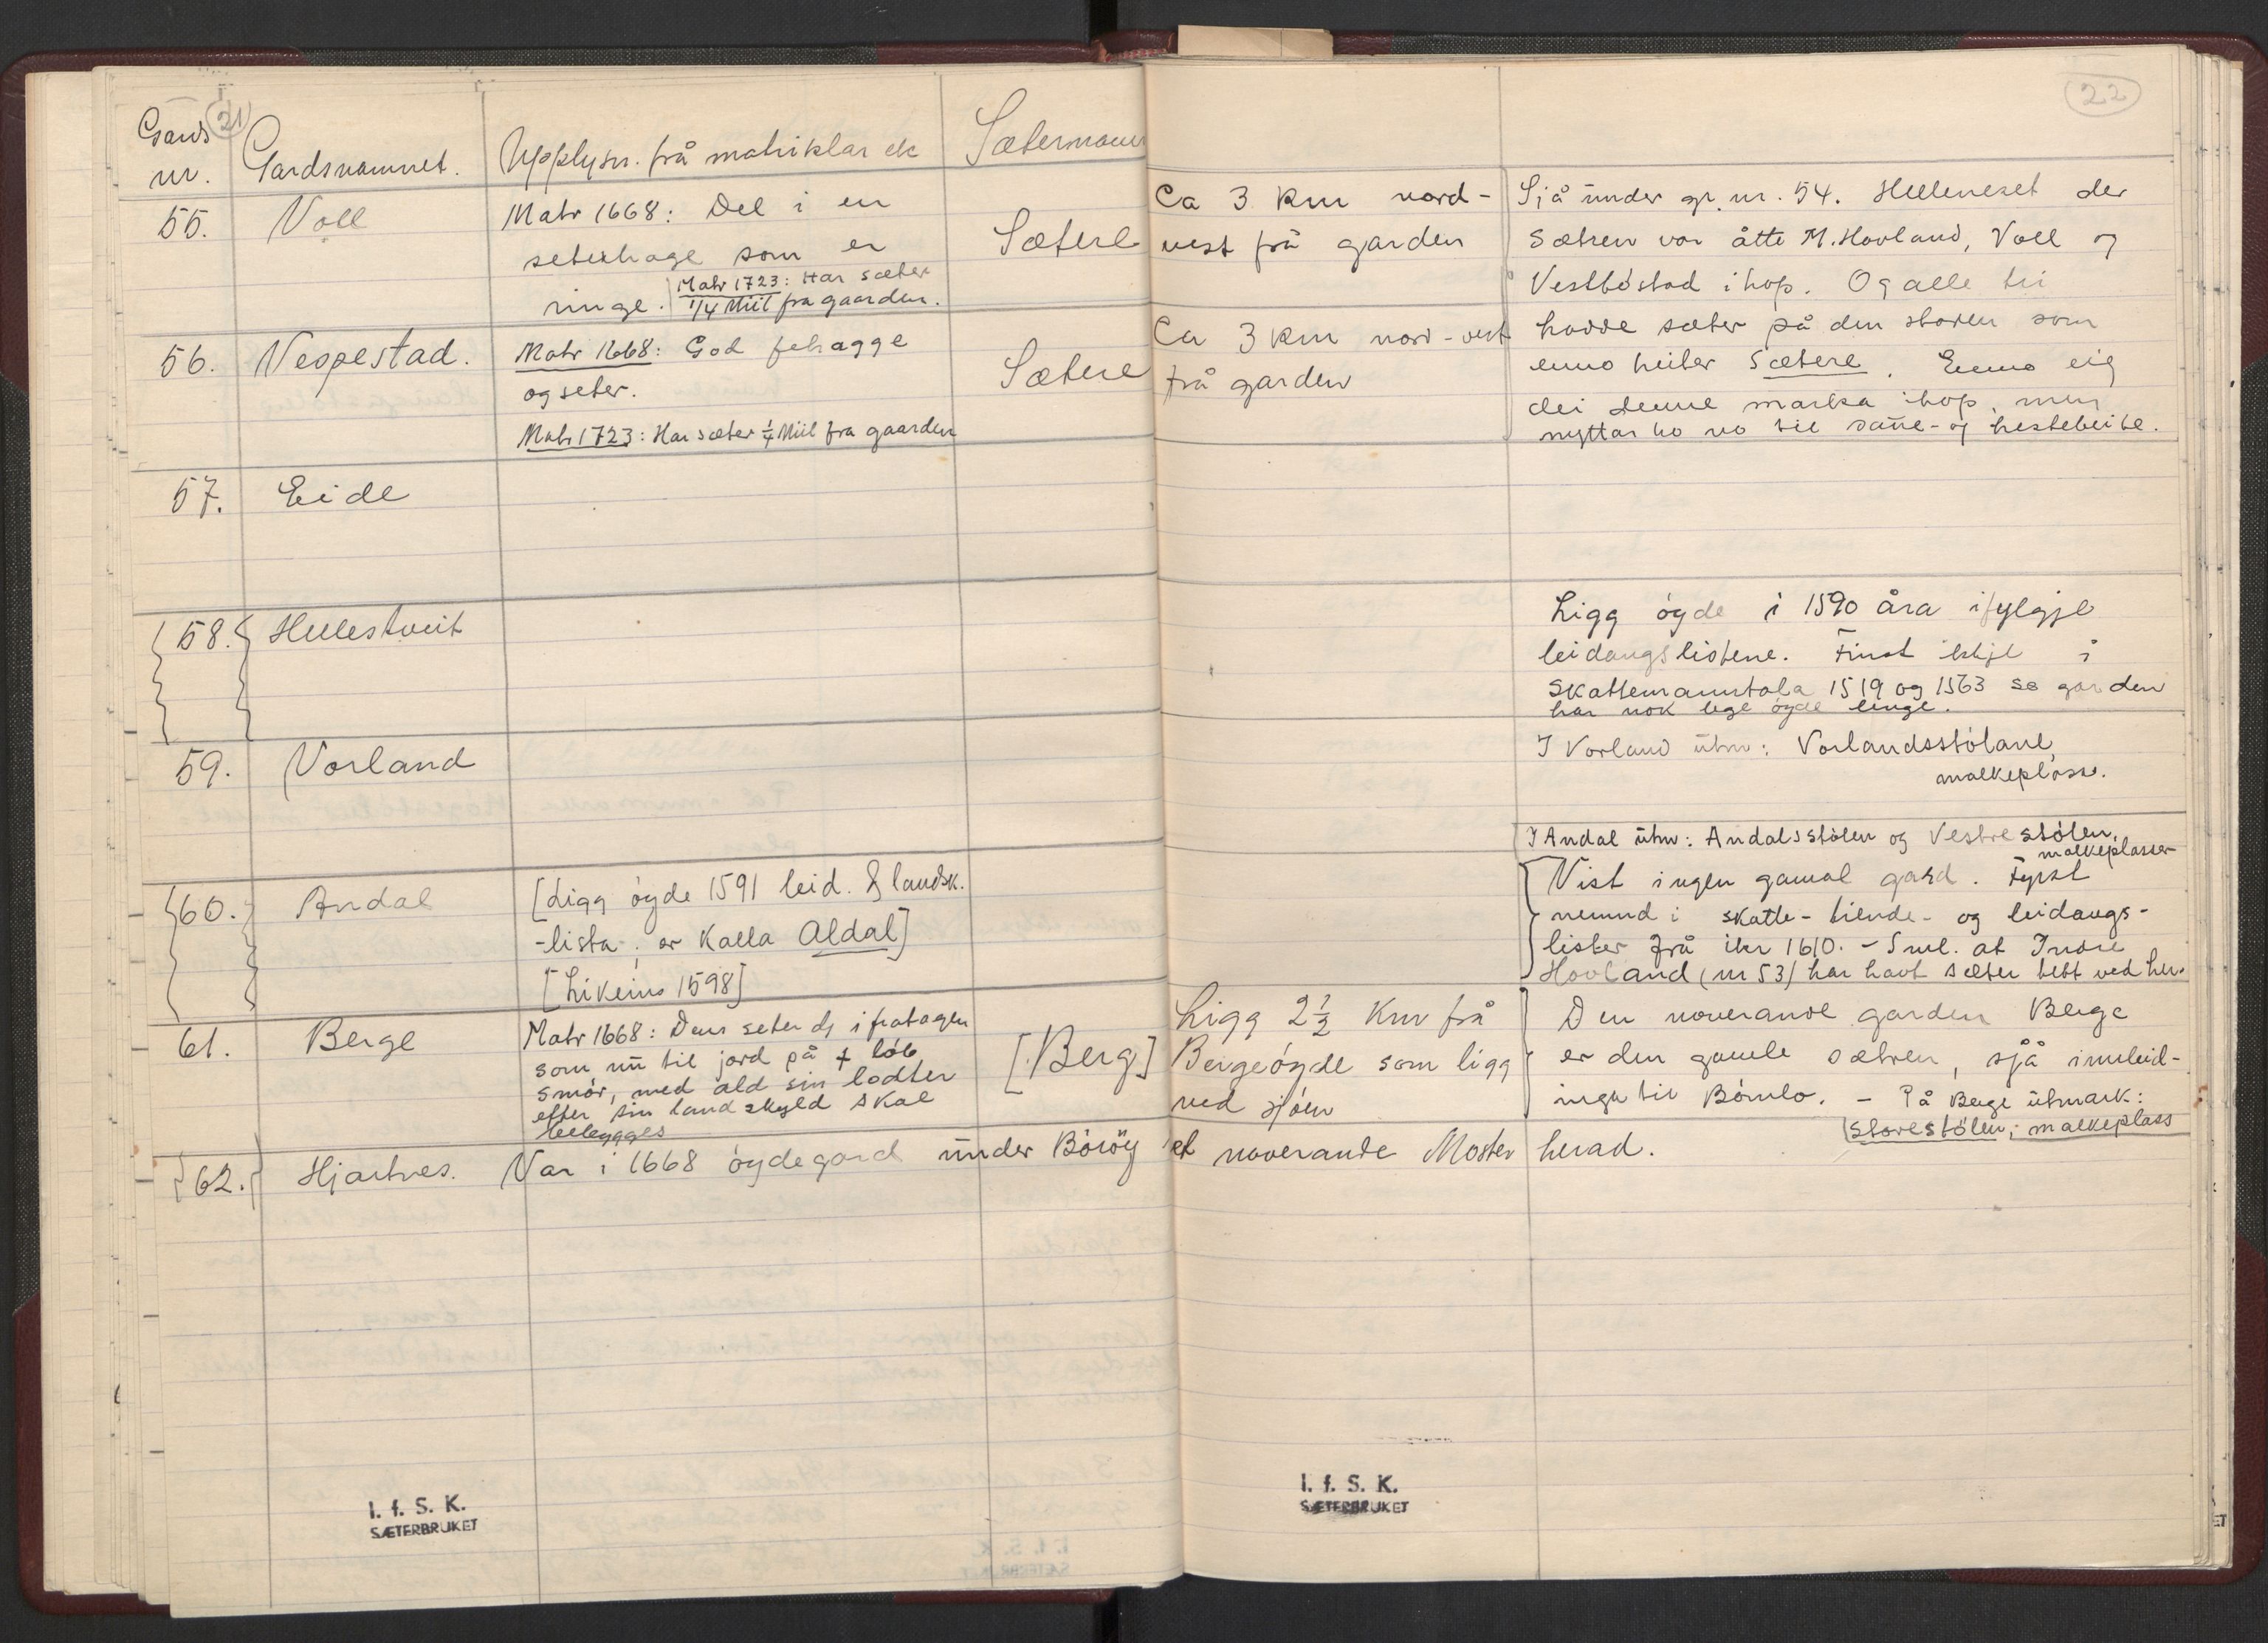 21
Gards nr.
Gardsnamnet.
Upplysn. frå matriklar etc
Sæternamn
55.
Voll
Matr 1668: Del i en
seterhage som er
ringe. Matr 1723: Har sæter
1/4 Miil fra gaarden.
Sætere
56.
Vespestad.
Matr 1668: God fehagge
og seter.
Matr 1723: Har sæter 1/4 Miil fra gaarden
Sætere
57.
Eide
58.
Hellestveit
59.
Vorland
60.
Andal
[Ligg øyde 1591 leid. & landsk.
-lista, er kalla Aldal]
[Likeins 1598]
61.
Berge
Matr 1668: Dens seter dj ifratagen
som nu til jord på + løb
smör, med ald sin lodter
efter sin landskyld skal
bebygges
[Berg]
62.
Hjartnes.
Var i 1668 øydegard under Böröy et noverande Moster herad.
I. f. S. K.
SÆTERBRUKET
22
Ca 3 km nord-
vest frå garden
Sjå under gr. nr. 54. Helleneset der
sætren var åtte M. Hovland, Voll og
Vestbøstad ihop. Og alle tri
hadde sæter på den staden som
enno heiter Sætere. Enno eig
dei denne marka ihop, men
nyttar ho no til saue- og hestebeite.
Ca 3 km nord-vest
frå garden
Ligg øyde i 1590 åra ifylgje
leidangslistene. Finst ikkje i
skattemanntala 1519 og 1563 so garden
har nok lege øyde lenge.
I Vorland utm: Vorlandsstølane
malkeplass.
I Andal utm: Andalsstølen og Vestrestølen,
malkeplasser
Vist ingen gamal gard. Fyrst
nemnd i skatte- tiende- og leidangs-
lister frå ikr 1610. - Sml. at Indre
Hovland (nr 53) har havt sæter tett ved her.
Ligg 2 1/2 km frå
Bergeøyde som ligg
ved sjøen
Den noverande garden Berge
er den gamle sætren, sjå innleid-
inga til Bømlo. - På Berge utmark:
Storestølen; malkeplass
I. f. S. K.
SÆTERBRUKET